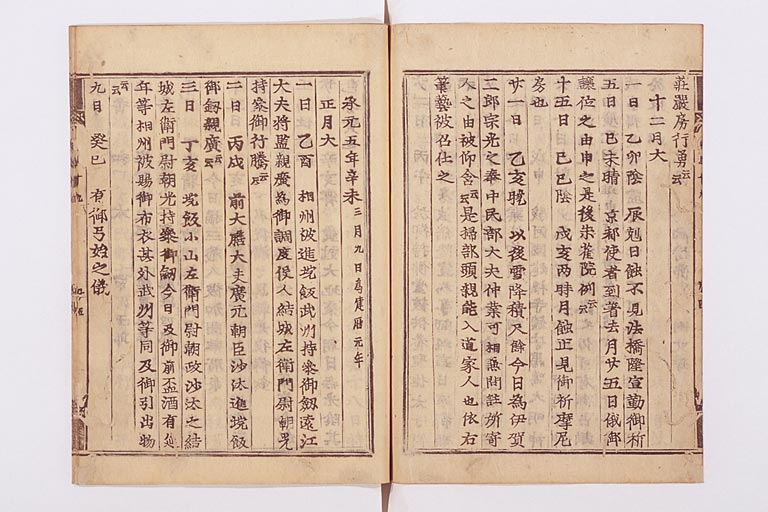 莊嚴房行勇云云
十二月大
一日 乙卯陰 辰剋日蝕不見法橋隆宣勤御祈
五日 己未晴 京都使者到著去月廿五日俄御
讓位之由申之是後朱雀院例云云
十五日 己巳陰 戌亥兩時月蝕正見御祈摩尼
房也
廿一日 乙亥晩 以後雪降積尺餘今日為伊賀
三郎宗光之奉中民部大夫仲業可相 問註所寄
人之由被仰含云云是掃部頭親能入道家人也依右
筆藝被召仕之
承元五年辛未三月九日為建暦元年
正月大
一日 乙酉 相州被進埦飯武州持參御劔遠江
大夫將監親廣為御調度役人結城左衛門尉朝光
持參御行騰云云
二日 丙戌 前大膳大夫廣元朝臣沙汰進埦飯
御劔親廣云云
三日 丁亥 埦飯小山左衛門尉朝政沙汰之結
城左衛門尉朝光持參御劔今日及御前盃酒有
年等相州被賜御布衣其外武州等同及御引出物
云云
九日 癸巳 有御弓始之儀